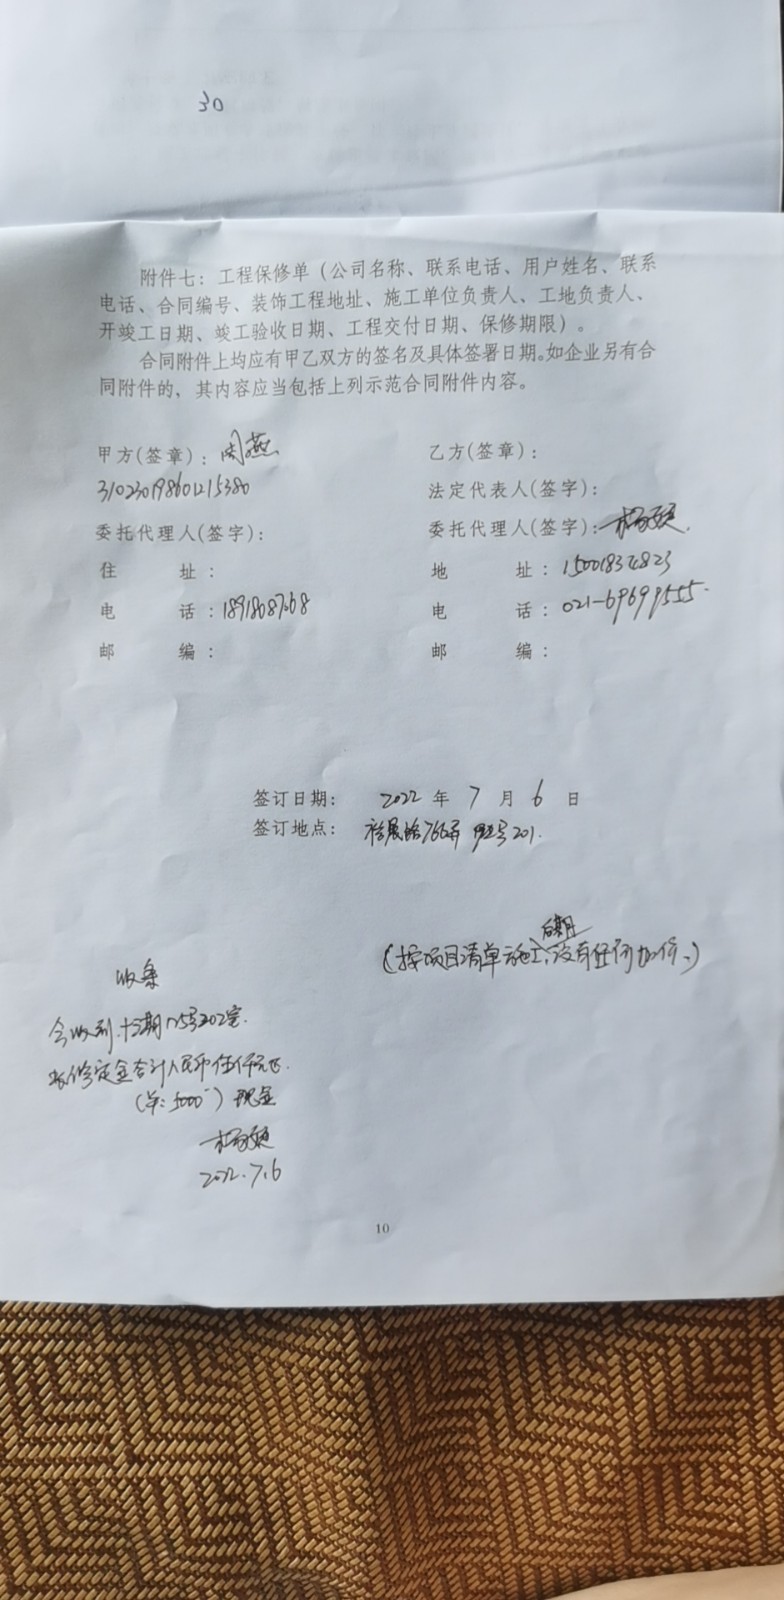 30
附件七：工程保修单（公司名称、联系电话、用户姓名、联系
电话、合同编号、装饰工程地址、施工单位负责人、工地负责人、
开竣工日期、竣工验收日期、工程交付日期、保修期限）。
合同附件上均应有甲乙双方的签名及具体签署日期。如企业另有合
同附件的，其内容应当包括上列示范合同附件内容。
甲方(签章)：周燕
310230198601215380
委托代理人(签字)：
住 址：
电 话：
邮 编：
乙方(签章)：
法定代表人(签字)：
委托代理人(签字)：
地 址：15001834823
电 话：021-69699555.
邮 编：
签订日期： 2022 年 7 月 6 日
签订地点： 766弄 号201.
后期
（按项目清单施工，没有任何加价。）
收条
今收到十三期 175号202室.
装修定金合计人民币伍仟元正.
（¥：5000-）现金
2022.7.6
10